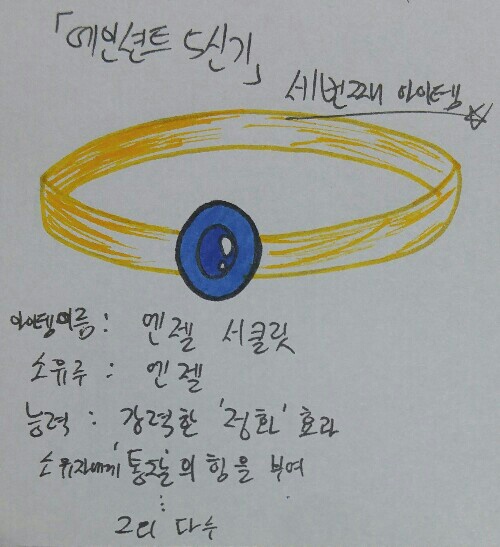 「에인션트 5신기」
세번째 아이템
아이템이름 : 엔젤 서클릿
소유주 : 엔젤
능력 : 강력한 '정화' 효과
소유자에게 '통찰'의 힘을 부여
⋮
그외 다수